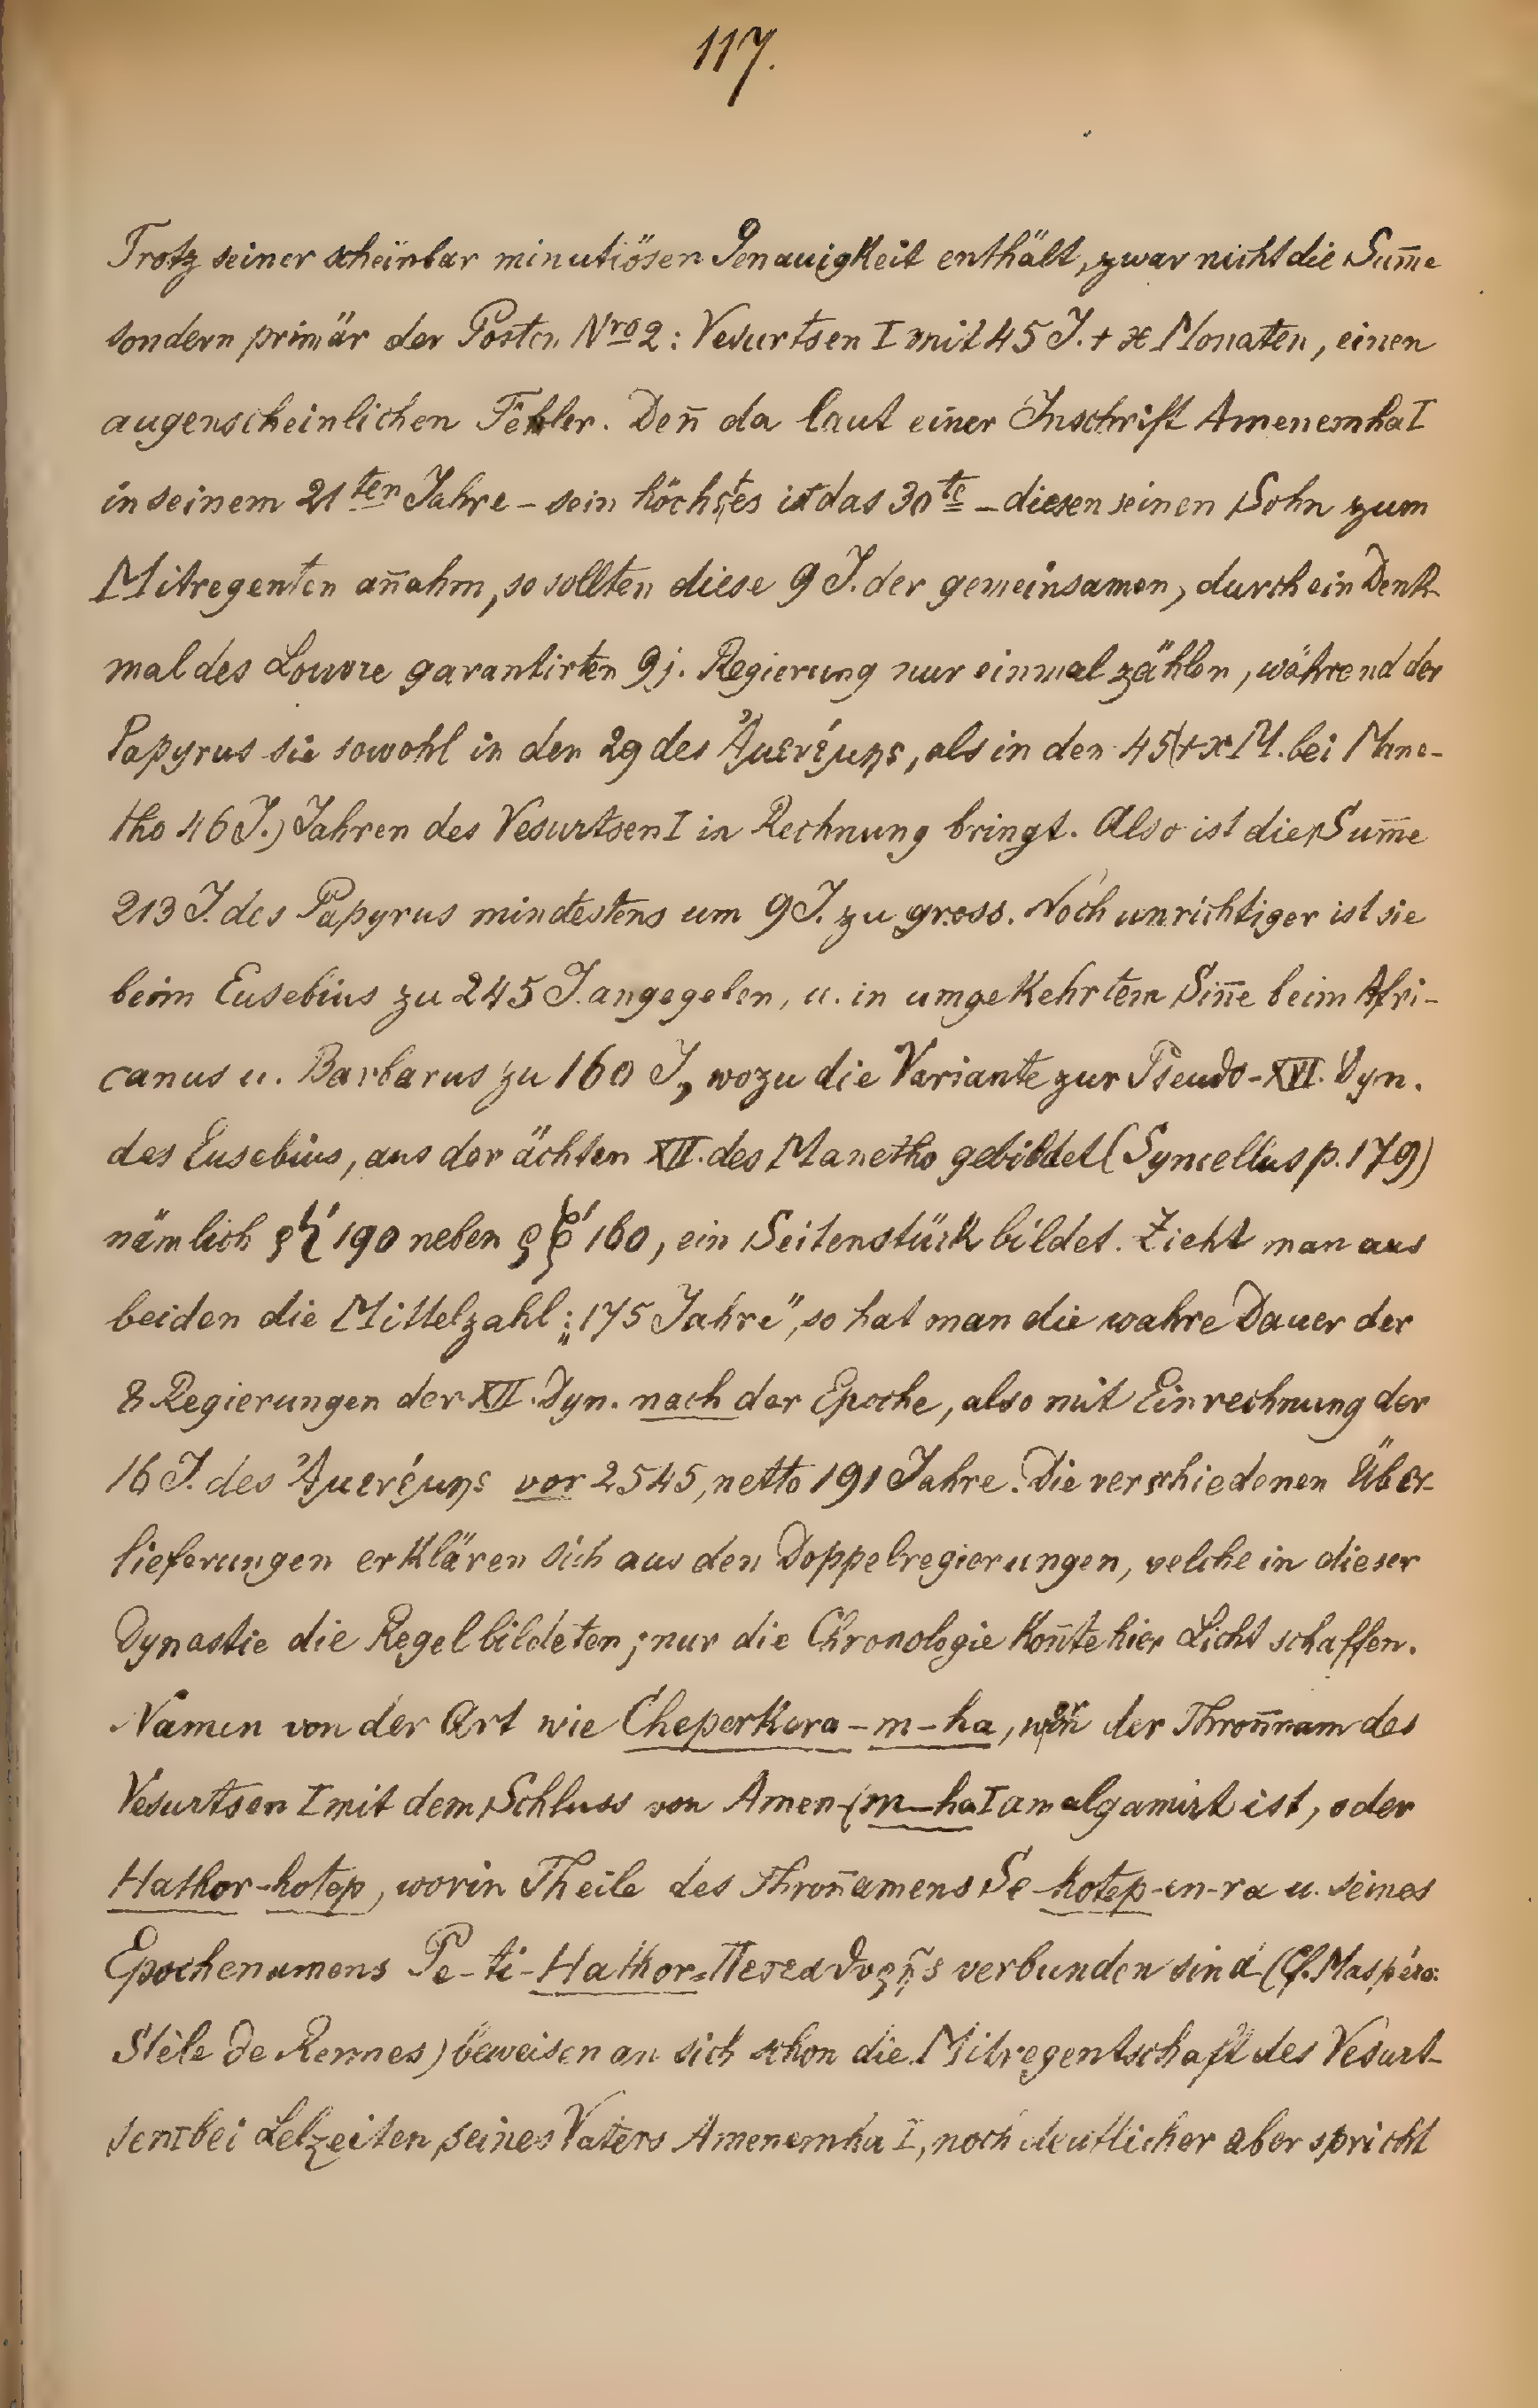 117.
Trotz seiner scheinbar minutiösen Genauigkeit enthält, zwar nicht die Sum̄e
sondern primär der Posten Nro 2: Vesurtsen I mit 45 J. + x Monaten, einen
augenscheinlichen Fehler. Den̄ da laut einer Inschrift Amenemha I
in seinem 21ten Jahre – sein höchstes ist das 30te – diesen seinen Sohn zum
Mitregenten an̄ahm, so sollten diese 9 J. der gemeinsamen, durch ein Denk-
mal des Louvre garantirten 9j. Regierung nur einmal zählen, während der
Papyrus sie sowohl in den 29 des Ἀμενέμης, als in den 45 (+ x M. bei Mane-
tho 46 J.) Jahren des Vesurtsen I in Rechnung bringt. Also ist die Sum̄e
213 J. des Papyrus mindestens um 9 J. zu gross. Noch unrichtiger ist sie
beim Eusebius zu 245 J. angegeben, u. in umgekehrtem Sin̄e beim Afri-
canus u. Barbarus zu 160 J., wozu die Variante zur Pseudo-XVI. Dyn.
des Eusebius, aus der ächten XII. des Manetho gebildet (Syncellus p. 179)
nämlich ϱϟ' 190 neben ϱξ' 160, ein Seitenstück bildet. Zieht man aus
beiden die Mittelzahl: „175 Jahre", so hat man die wahre Dauer der
8 Regierungen der XII. Dyn. nach der Epoche, also mit Einrechnung der
16 J. des Ἀμενέμης vor 2545, netto 191 Jahre. Die verschiedenen Über-
lieferungen erklären sich aus den Doppelregierungen, welche in dieser
Dynastie die Regel bildeten; nur die Chronologie kon̄te hier Licht schaffen.
Namen von der Art wie Cheperkara-m-ha, worin der Thron̄nam des
Vesurtsen I mit dem Schluss von Amen-(m-ha I amalgamirt ist, oder
Hathor-hotep, worin Theile des Thron̄amens Se-hotep-en-ra u. seines
Epochenamens Pe-ti-Hathor-Πετεαθυρῆς verbunden sind (Cf. Maspéro:
Stèle de Rennes) beweisen an sich schon die Mitregentschaft des Vesurt-
sen I bei Lebzeiten seines Vaters Amenemha I, noch deutlicher aber spricht